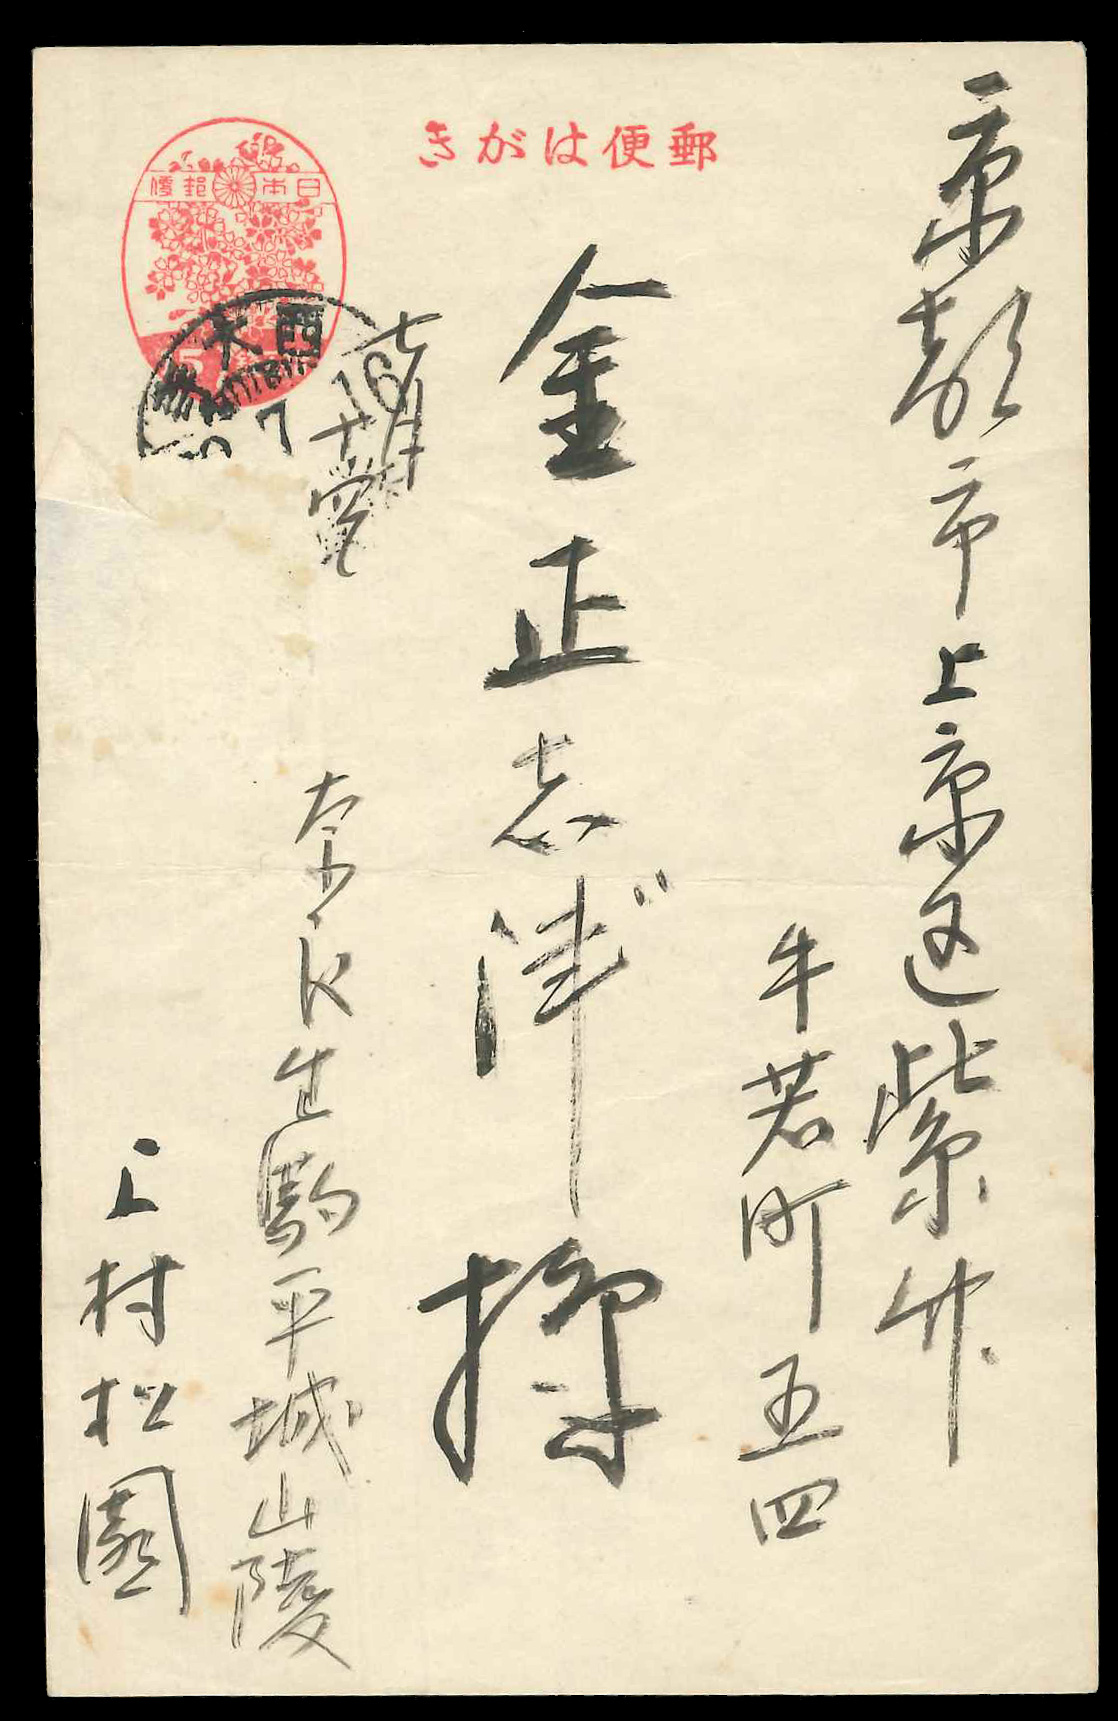 郵便はがき
日本郵便
京都市上京区紫竹
牛若町五四
金正志津゛様
七月十六日
奈良生駒平城山陵
上村松園
西大
16
7
5